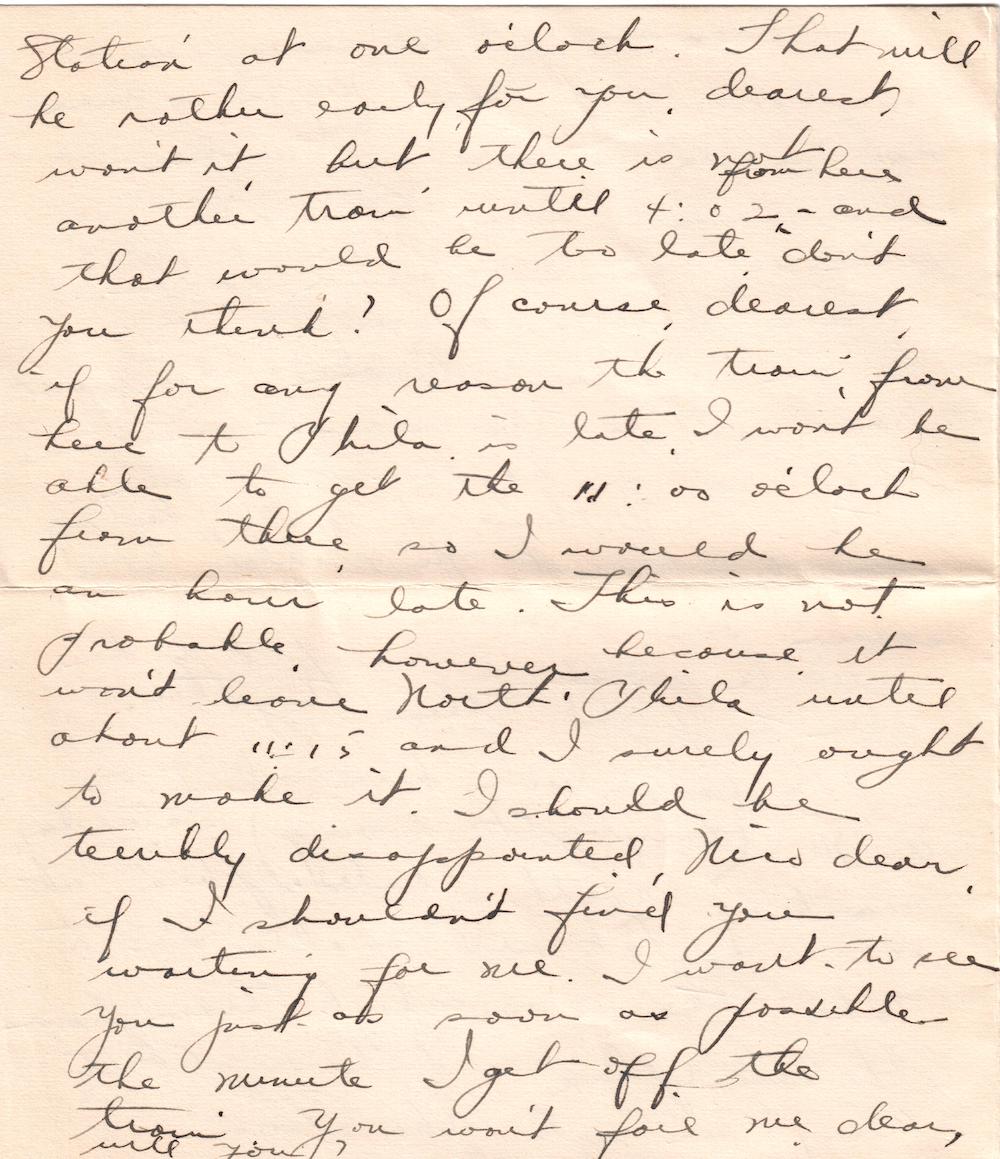 Station at one o'clock. That will
be rather early for you, dearest,
won't it, but there is not
from here
another train until 4:02, - and
that would be too late don't
you think? Of course, dearest,
if for any reason the train, from
here to Phila. is late, I won't be
able to get the 11:00 o'clock
from there so I would be
an hour late. This is not
probable, however, because it
won't leave North Phila until
about 11:15 and I surely ought
to make it. I should be
terribly disappointed, dear,
if I shouldn't find you
waiting for me. I want to see
you just as soon as possible
the minute I get off the
train. You won't fail me dear,
will you?